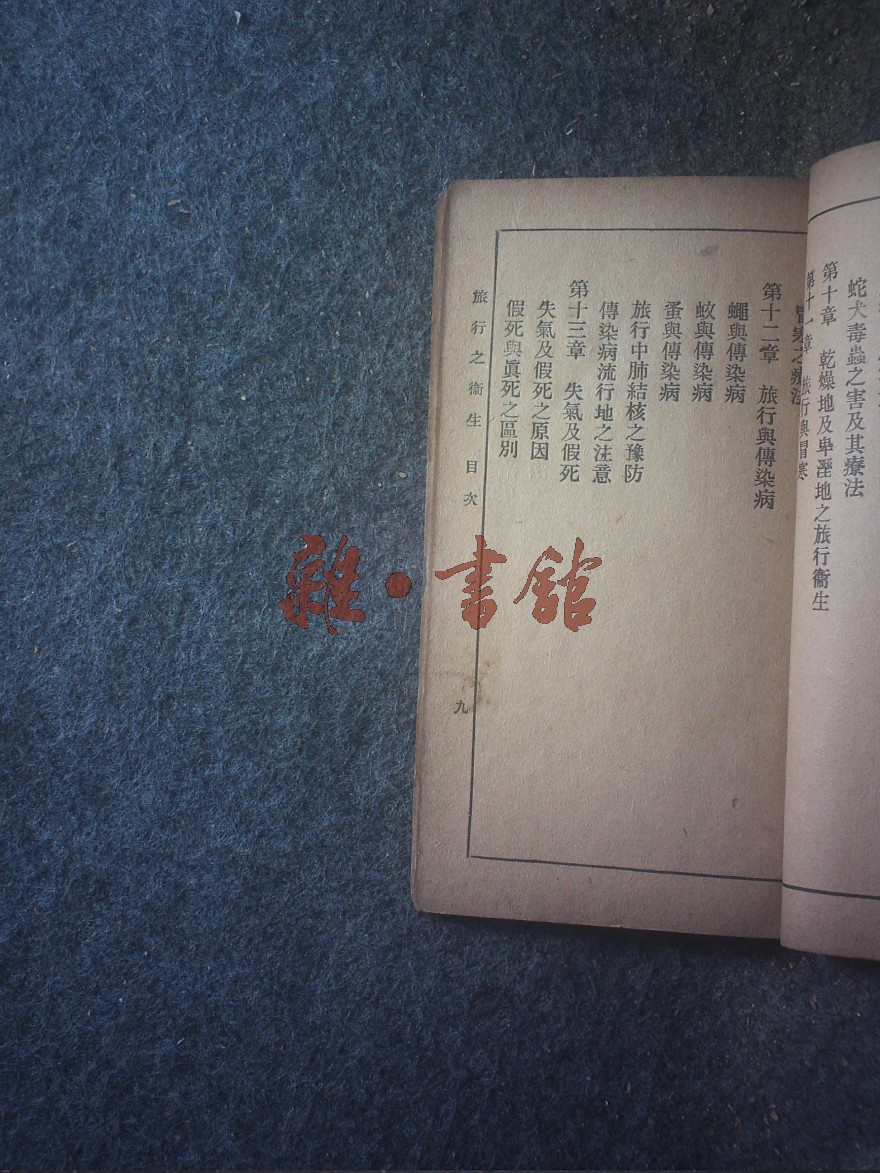 蛇犬毒蟲之害及其療法
第十章　乾燥地及卑溼地之旅行衞生
第十一章　旅行與冒寒
冒寒之療法
第十二章　旅行與傳染病
蠅與傳染病
蚊與傳染病
蚤與傳染病
旅行中肺結核之豫防
傳染病流行地之注意
第十三章　失氣及假死
失氣及假死之原因
假死與眞死之區別
旅行之衞生　目次
九
雜·書館